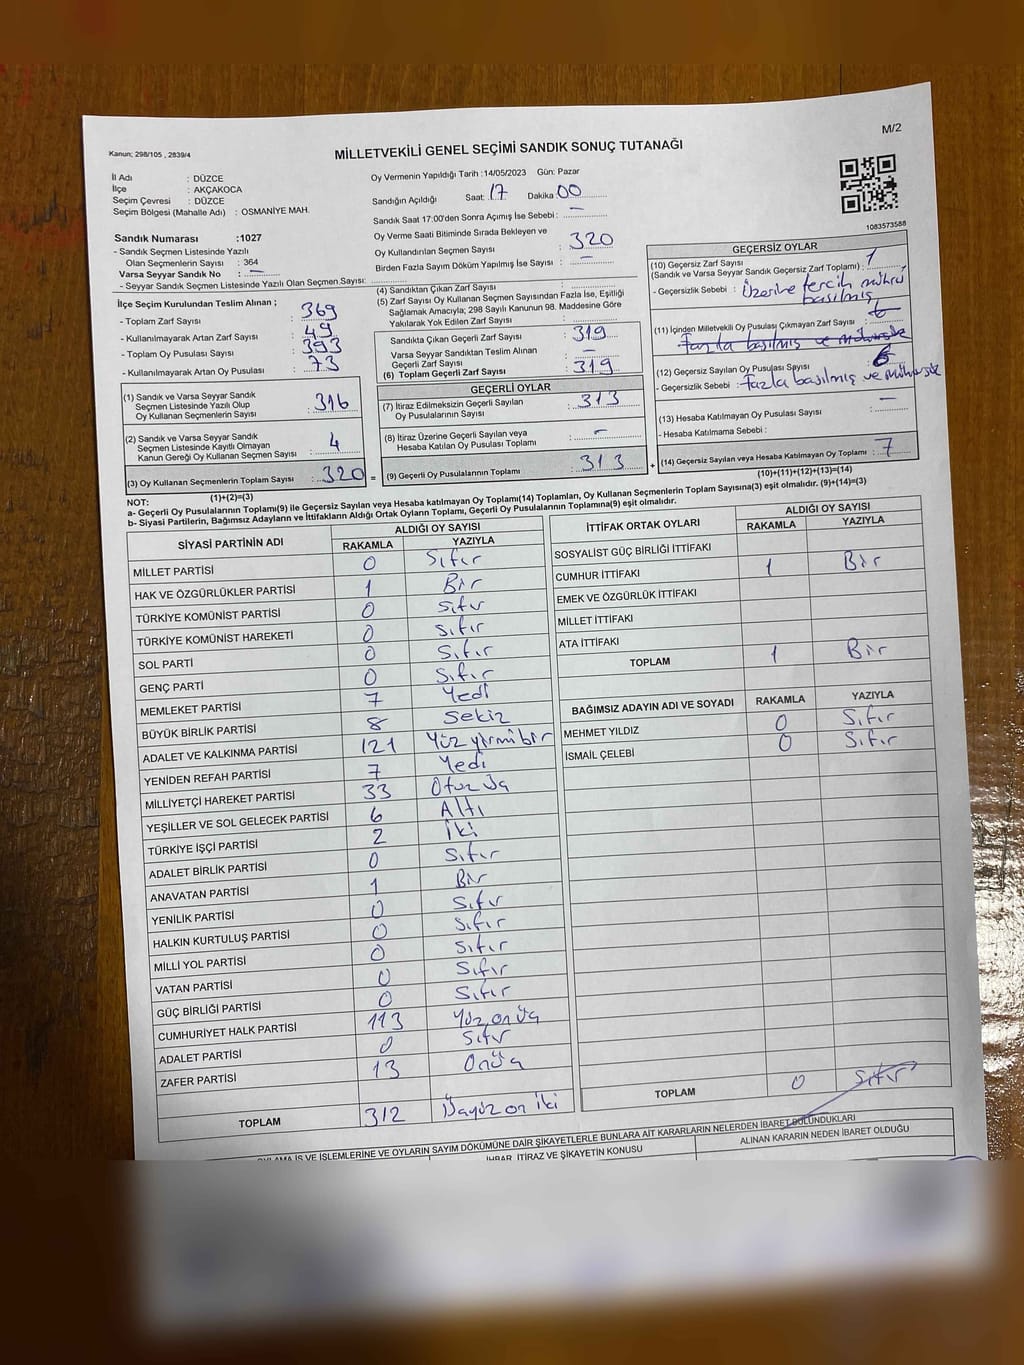 M/2
Kanun; 298/105 , 2839/4
MİLLETVEKİLİ GENEL SEÇİMİ SANDIK SONUÇ TUTANAĞI
İl Adı : DÜZCE
İlçe : AKÇAKOCA
Seçim Çevresi : DÜZCE
Seçim Bölgesi (Mahalle Adı) : OSMANİYE MAH.
Sandık Numarası :1027
- Sandık Seçmen Listesinde Yazılı
Olan Seçmenlerin Sayısı : 364
Varsa Seyyar Sandık No : —
- Seyyar Sandık Seçmen Listesinde Yazılı Olan Seçmen Sayısı:
Oy Vermenin Yapıldığı Tarih :14/05/2023 Gün: Pazar
Sandığın Açıldığı Saat: 17 Dakika: 00
Sandık Saat 17:00'den Sonra Açımış İse Sebebi : —
Oy Verme Saati Bitiminde Sırada Bekleyen ve
Oy Kullandırılan Seçmen Sayısı : 320
Birden Fazla Sayım Döküm Yapılmış İse Sayısı : —
1083573588
İlçe Seçim Kurulundan Teslim Alınan ;
- Toplam Zarf Sayısı : 369
- Kullanılmayarak Artan Zarf Sayısı : 49
- Toplam Oy Pusulası Sayısı : 393
- Kullanılmayarak Artan Oy Pusulası : 73
(1) Sandık ve Varsa Seyyar Sandık
Seçmen Listesinde Yazılı Olup
Oy Kullanan Seçmenlerin Sayısı : 316
(2) Sandık ve Varsa Seyyar Sandık
Seçmen Listesinde Kayıtlı Olmayan
Kanun Gereği Oy Kullanan Seçmen Sayısı : 4
(3) Oy Kullanan Seçmenlerin Toplam Sayısı : 320 =
(1)+(2)=(3)
(4) Sandıktan Çıkan Zarf Sayısı :
(5) Zarf Sayısı Oy Kullanan Seçmen Sayısından Fazla İse, Eşitliği
Sağlamak Amacıyla; 298 Sayılı Kanunun 98. Maddesine Göre
Yakılarak Yok Edilen Zarf Sayısı :
Sandıkta Çıkan Geçerli Zarf Sayısı : 319
Varsa Seyyar Sandıktan Teslim Alınan
Geçerli Zarf Sayısı : —
(6) Toplam Geçerli Zarf Sayısı : 319
GEÇERLİ OYLAR
(7) İtiraz Edilmeksizin Geçerli Sayılan
Oy Pusulalarının Sayısı : 313
(8) İtiraz Üzerine Geçerli Sayılan veya
Hesaba Katılan Oy Pusulası Toplamı : —
(9) Geçerli Oy Pusulalarının Toplamı : 313 +
GEÇERSİZ OYLAR
(10) Geçersiz Zarf Sayısı
(Sandık ve Varsa Seyyar Sandık Geçersiz Zarf Toplamı) : 1
- Geçersizlik Sebebi : Üzerine tercih mührü
basılmış
(11) İçinden Milletvekili Oy Pusulası Çıkmayan Zarf Sayısı :
Fazla basılmış ve mühürsüz
(12) Geçersiz Sayılan Oy Pusulası Sayısı : 6
- Geçersizlik Sebebi : fazla basılmış ve mühürsüz
(13) Hesaba Katılmayan Oy Pusulası Sayısı : —
- Hesaba Katılmama Sebebi :
(14) Geçersiz Sayılan veya Hesaba Katılmayan Oy Toplamı : 7
(10)+(11)+(12)+(13)=(14)
NOT:
a- Geçerli Oy Pusulalarının Toplamı(9) ile Geçersiz Sayılan veya Hesaba katılmayan Oy Toplamı(14) Toplamları, Oy Kullanan Seçmenlerin Toplam Sayısına(3) eşit olmalıdır. (9)+(14)=(3)
b- Siyasi Partilerin, Bağımsız Adayların ve İttifakların Aldığı Ortak Oyların Toplamı, Geçerli Oy Pusulalarının Toplamına(9) eşit olmalıdır.
SİYASİ PARTİNİN ADI ALDIĞI OY SAYISI
RAKAMLA YAZIYLA
MİLLET PARTİSİ 0 Sıfır
HAK VE ÖZGÜRLÜKLER PARTİSİ 1 Bir
TÜRKİYE KOMÜNİST PARTİSİ 0 Sıfır
TÜRKİYE KOMÜNİST HAREKETİ 0 Sıfır
SOL PARTİ 0 Sıfır
GENÇ PARTİ 0 Sıfır
MEMLEKET PARTİSİ 7 Yedi
BÜYÜK BİRLİK PARTİSİ 8 Sekiz
ADALET VE KALKINMA PARTİSİ 121 Yüz yirmi bir
YENİDEN REFAH PARTİSİ 7 Yedi
MİLLİYETÇİ HAREKET PARTİSİ 33 Otuz üç
YEŞİLLER VE SOL GELECEK PARTİSİ 6 Altı
TÜRKİYE İŞÇİ PARTİSİ 2 İki
ADALET BİRLİK PARTİSİ 0 Sıfır
ANAVATAN PARTİSİ 1 Bir
YENİLİK PARTİSİ 0 Sıfır
HALKIN KURTULUŞ PARTİSİ 0 Sıfır
MİLLİ YOL PARTİSİ 0 Sıfır
VATAN PARTİSİ 0 Sıfır
GÜÇ BİRLİĞİ PARTİSİ 0 Sıfır
CUMHURİYET HALK PARTİSİ 113 Yüz on üç
ADALET PARTİSİ 0 Sıfır
ZAFER PARTİSİ 13 Onüç
TOPLAM 312 Üçyüz on iki
İTTİFAK ORTAK OYLARI ALDIĞI OY SAYISI
RAKAMLA YAZIYLA
SOSYALİST GÜÇ BİRLİĞİ İTTİFAKI
CUMHUR İTTİFAKI 1 Bir
EMEK VE ÖZGÜRLÜK İTTİFAKI
MİLLET İTTİFAKI
ATA İTTİFAKI
TOPLAM 1 Bir
BAĞIMSIZ ADAYIN ADI VE SOYADI RAKAMLA YAZIYLA
MEHMET YILDIZ 0 Sıfır
İSMAİL ÇELEBİ 0 Sıfır
TOPLAM 0 Sıfır
OYLAMA İŞ VE İŞLEMLERİNE VE OYLARIN SAYIM DÖKÜMÜNE DAİR ŞİKAYETLERLE BUNLARA AİT KARARLARIN NELERDEN İBARET BULUNDUKLARI
İHBAR, İTİRAZ VE ŞİKAYETİN KONUSU ALINAN KARARIN NEDEN İBARET OLDUĞU